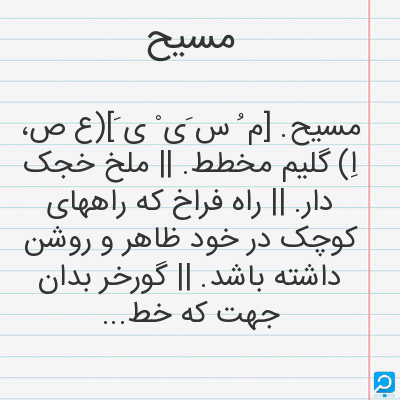 مسیح
مسیح. [م ُ س َی ْ ی َ](ع ص،
اِ) گلیم مخطط. || ملخ خجک
دار. || راه فراخ که راههای
کوچک در خود ظاهر و روشن
داشته باشد. || گورخر بدان
جهت که خط...